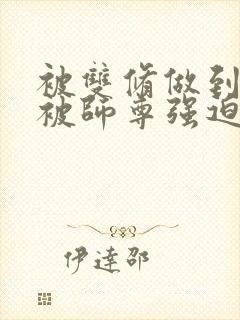 被雙脩做到
被師尊强迫
伊達邵